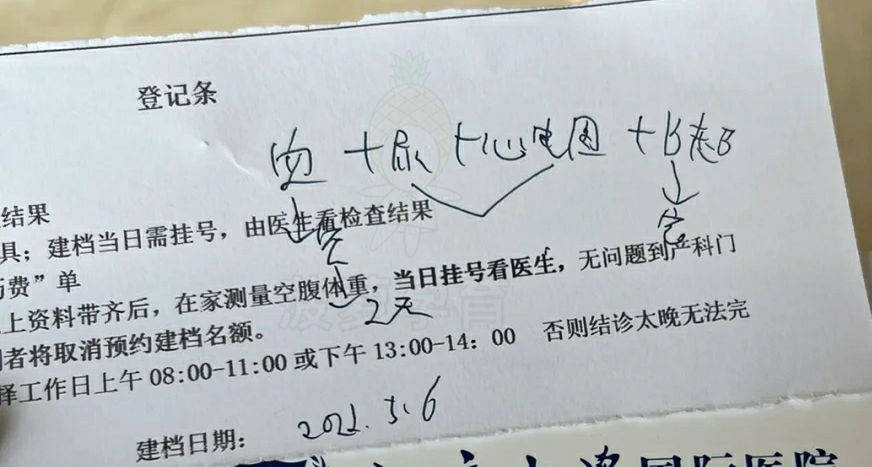 登记条
血 + 尿 + 心电图 + B超B
结果
具；建档当日需挂号，由医生看检查结果
空
药费”单
上资料带齐后，在家测量空腹体重，当日挂号看医生，无问题到产科门
2天
者将取消预约建档名额。
择工作日上午 08:00-11:00 或下午 13:00-14：00 否则结诊太晚无法完
建档日期： 2022.3.6
国际医院